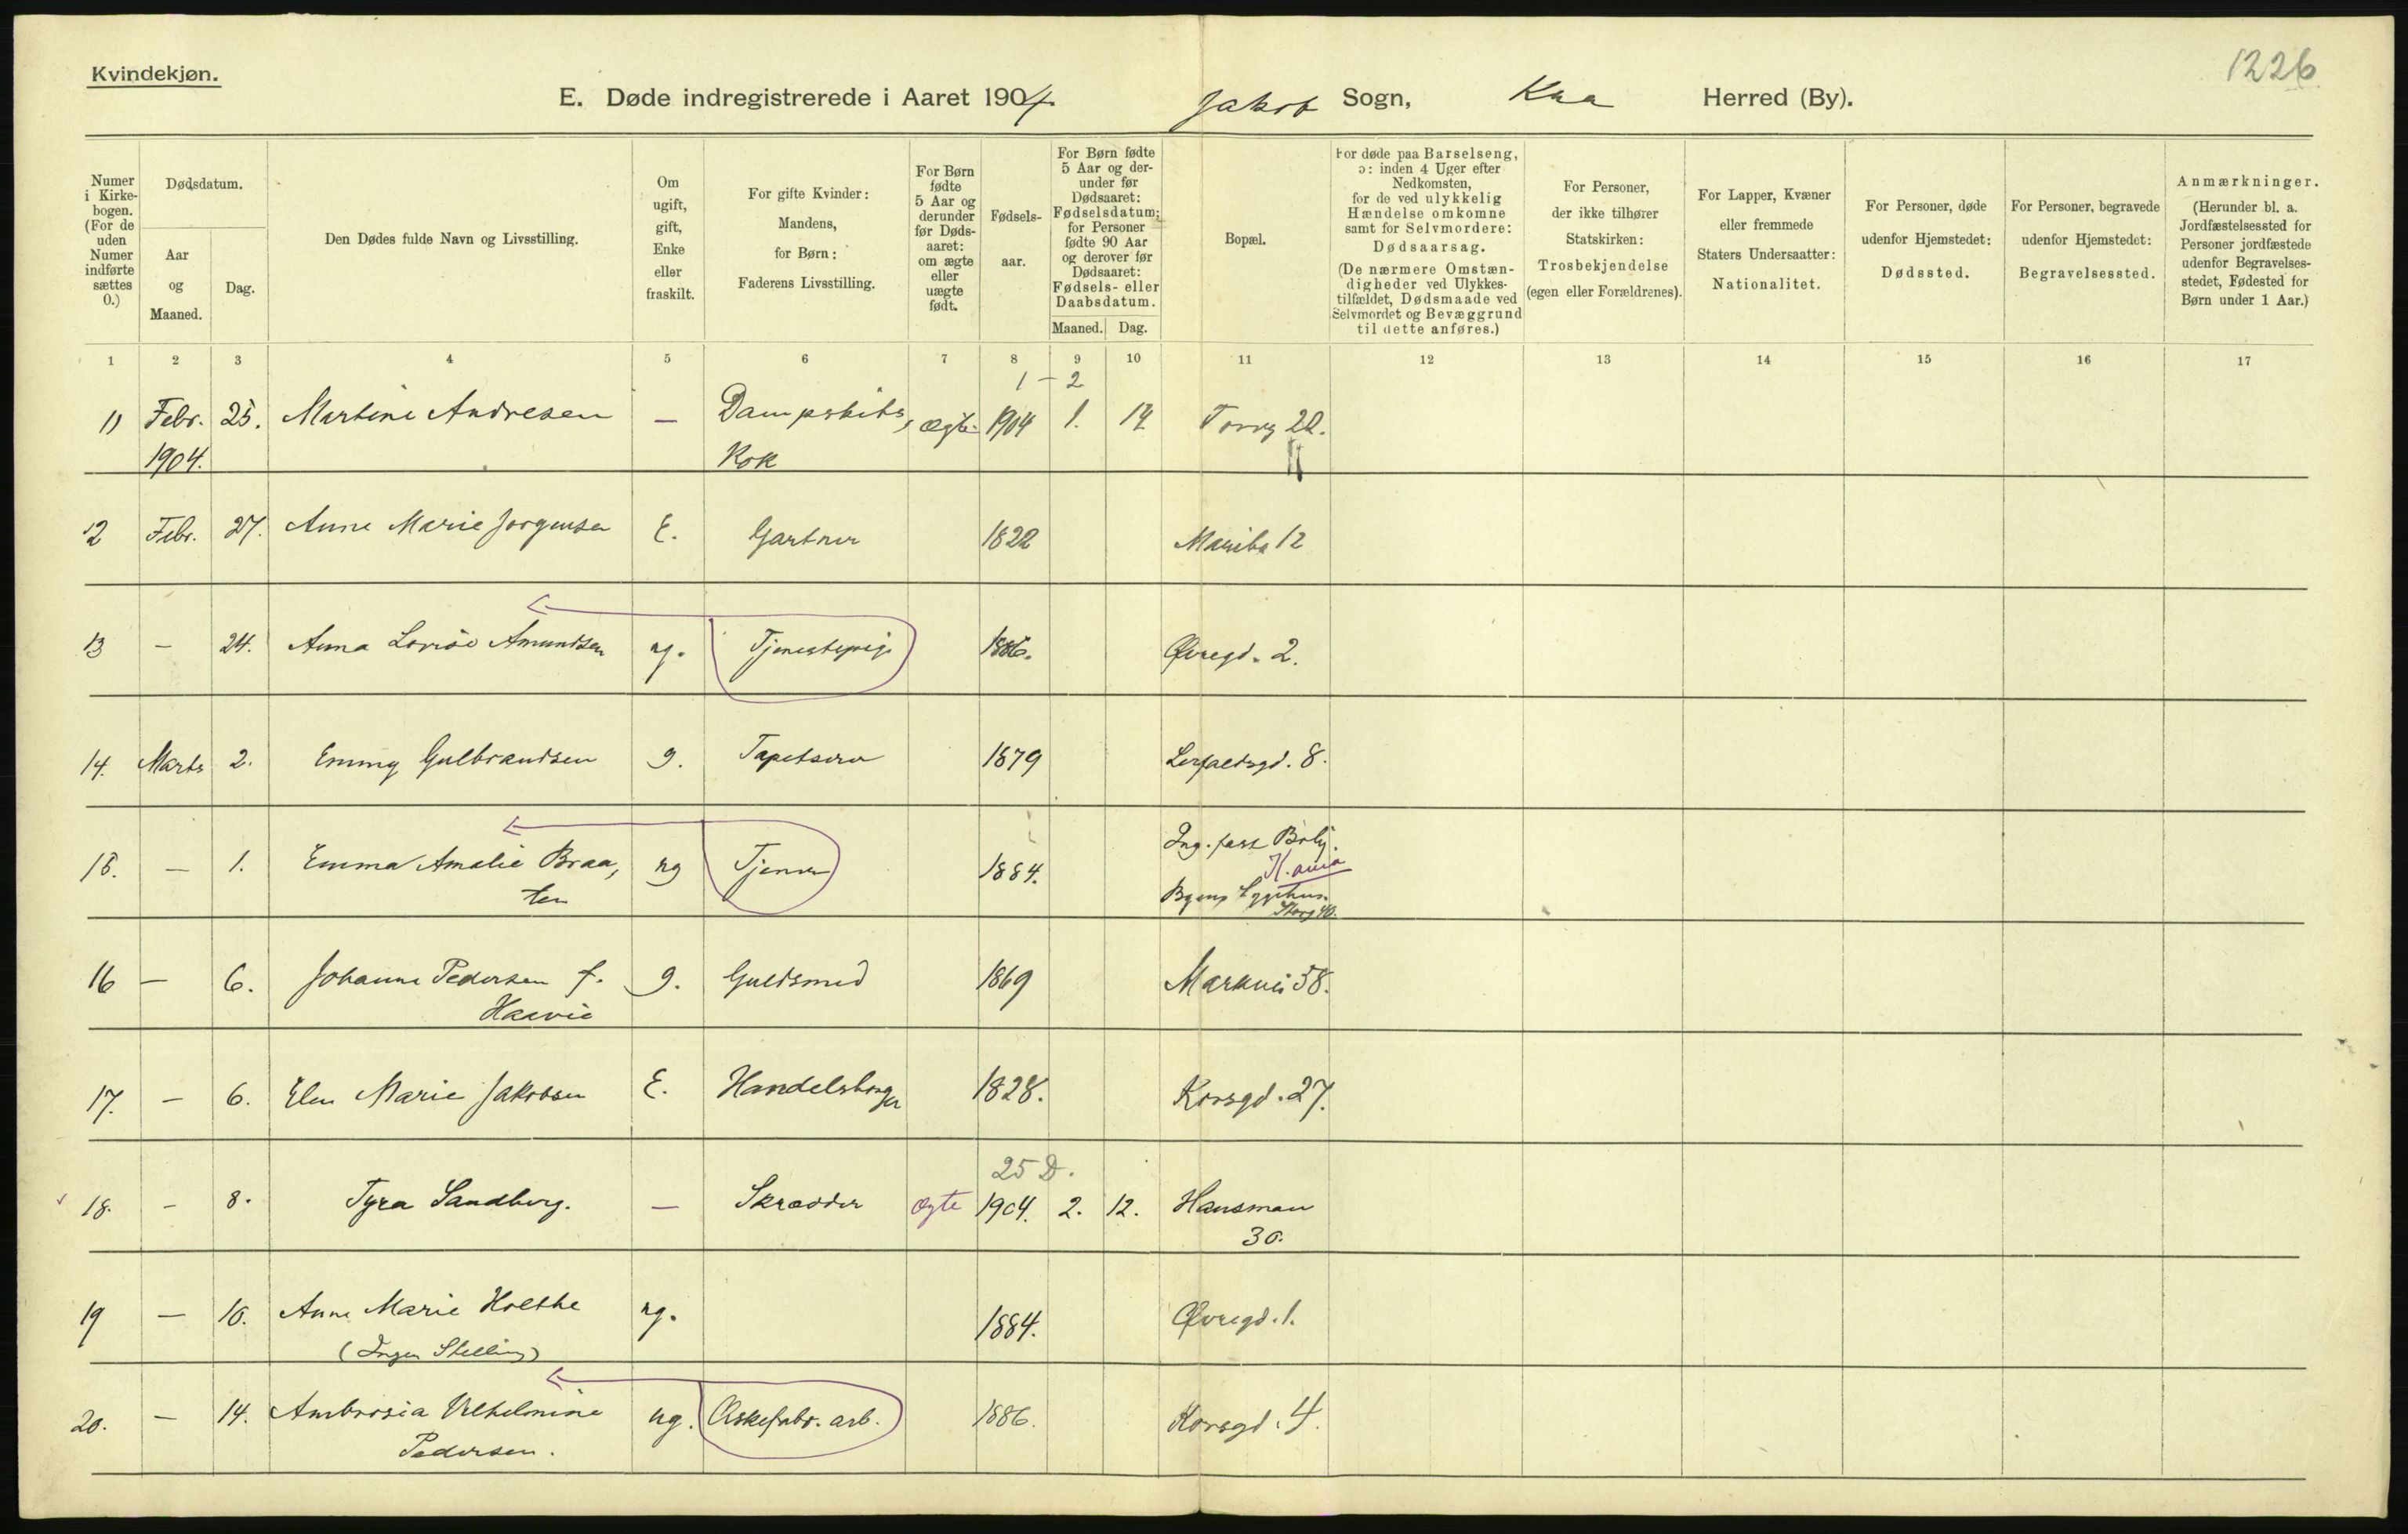 1226
Kvindekjøn.
E. Døde indregistrerede i Aaret 1904. Jakob Sogn, Kra Herred (By).
Numer i Kirkebogen. (For de uden Numer indførte sættes 0.)
Dødsdatum.
Aar og Maaned.
Dag.
Den Dødes fulde Navn og Livsstilling.
Om ugift, gift, Enke eller fraskilt.
For gifte Kvinder: Mandens, for Børn: Faderens Livsstilling.
For Børn fødte 5 Aar og derunder før Dødsaaret: om ægte eller uægte født.
Fødselsaar.
For Børn fødte 5 Aar og derunder før Dødsaaret: Fødselsdatum; for Personer fødte 90 Aar og derover før Dødsaaret: Fødsels- eller Daabsdatum.
Maaned. Dag.
Bopæl.
For døde paa Barselseng, ɔ: inden 4 Uger efter Nedkomsten, for de ved ulykkelig Hændelse omkomne samt for Selvmordere: Dødsaarsag. (De nærmere Omstændigheder ved Ulykkestilfældet, Dødsmaade ved Selvmordet og Bevæggrund til dette anføres.)
For Personer, der ikke tilhører Statskirken: Trosbekjendelse (egen eller Forældrenes).
For Lapper, Kvæner eller fremmede Staters Undersaatter: Nationalitet.
For Personer, døde udenfor Hjemstedet: Dødssted.
For Personer, begravede udenfor Hjemstedet: Begravelsessted.
Anmærkninger. (Herunder bl. a. Jordfæstelsessted for Personer jordfæstede udenfor Begravelsesstedet, Fødested for Børn under 1 Aar.)
1 2 3 4 5 6 7 8 9 10 11 12 13 14 15 16 17
1 - 2
11 Febr. 25. Martine Andresen — Dampskibs, Ægte 1904 1. 14 Torvg 20.
1904. Kok
12 Febr. 27. Anne Marie Jørgensen E. Gartner 1822 Marib. 12
13 — 24. Anna Lovise Amundsen ug. Tjenestepige 1886. Øvregd. 2.
14. Marts 2. Emmy Gulbrandsen g. Tapetserer 1879 Lerfaldsgd. 8.
15. — 1. Emma Amalie Braa, ug Tjener 1884. Ing. fast Bolig.
K.ania
ten Byens Sygehus.
Storg 40.
16 — 6. Johanne Pedersen f. g. Guldsmed 1869 Markvei 58.
Haavie
17. — 6. Elen Marie Jakobsen E. Handelsborger 1828. Korsgd. 27.
25 D.
18. — 8. Tyra Sandberg. — Skrædder Ægte 1904. 2. 12. Hausman
30.
19 — 10. Anne Marie Holthe ug. 1884. Øvregd. 1.
(Ingen Stilling)
20. — 14. Ambrosia Vilhelmine ug. Æskefabr. arb. 1886. Korsgd. 4.
Pedersen.